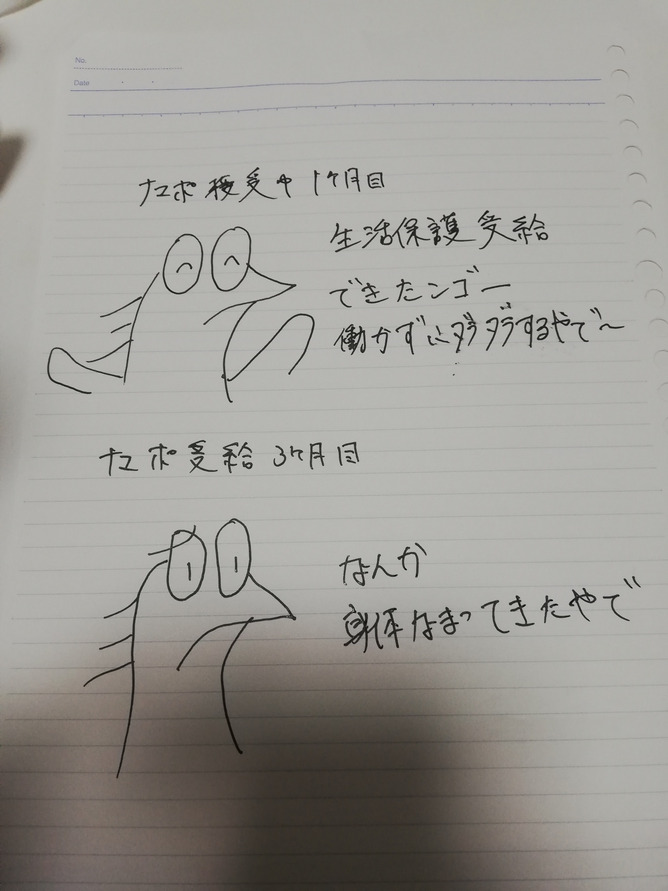 No.
Date
ナマポ 受中 1ヶ月目
生活保護受給
できたンゴー
働かずにダラダラするやで〜
ナマポ受給 3ヶ月目
なんか
身体なまってきたやで